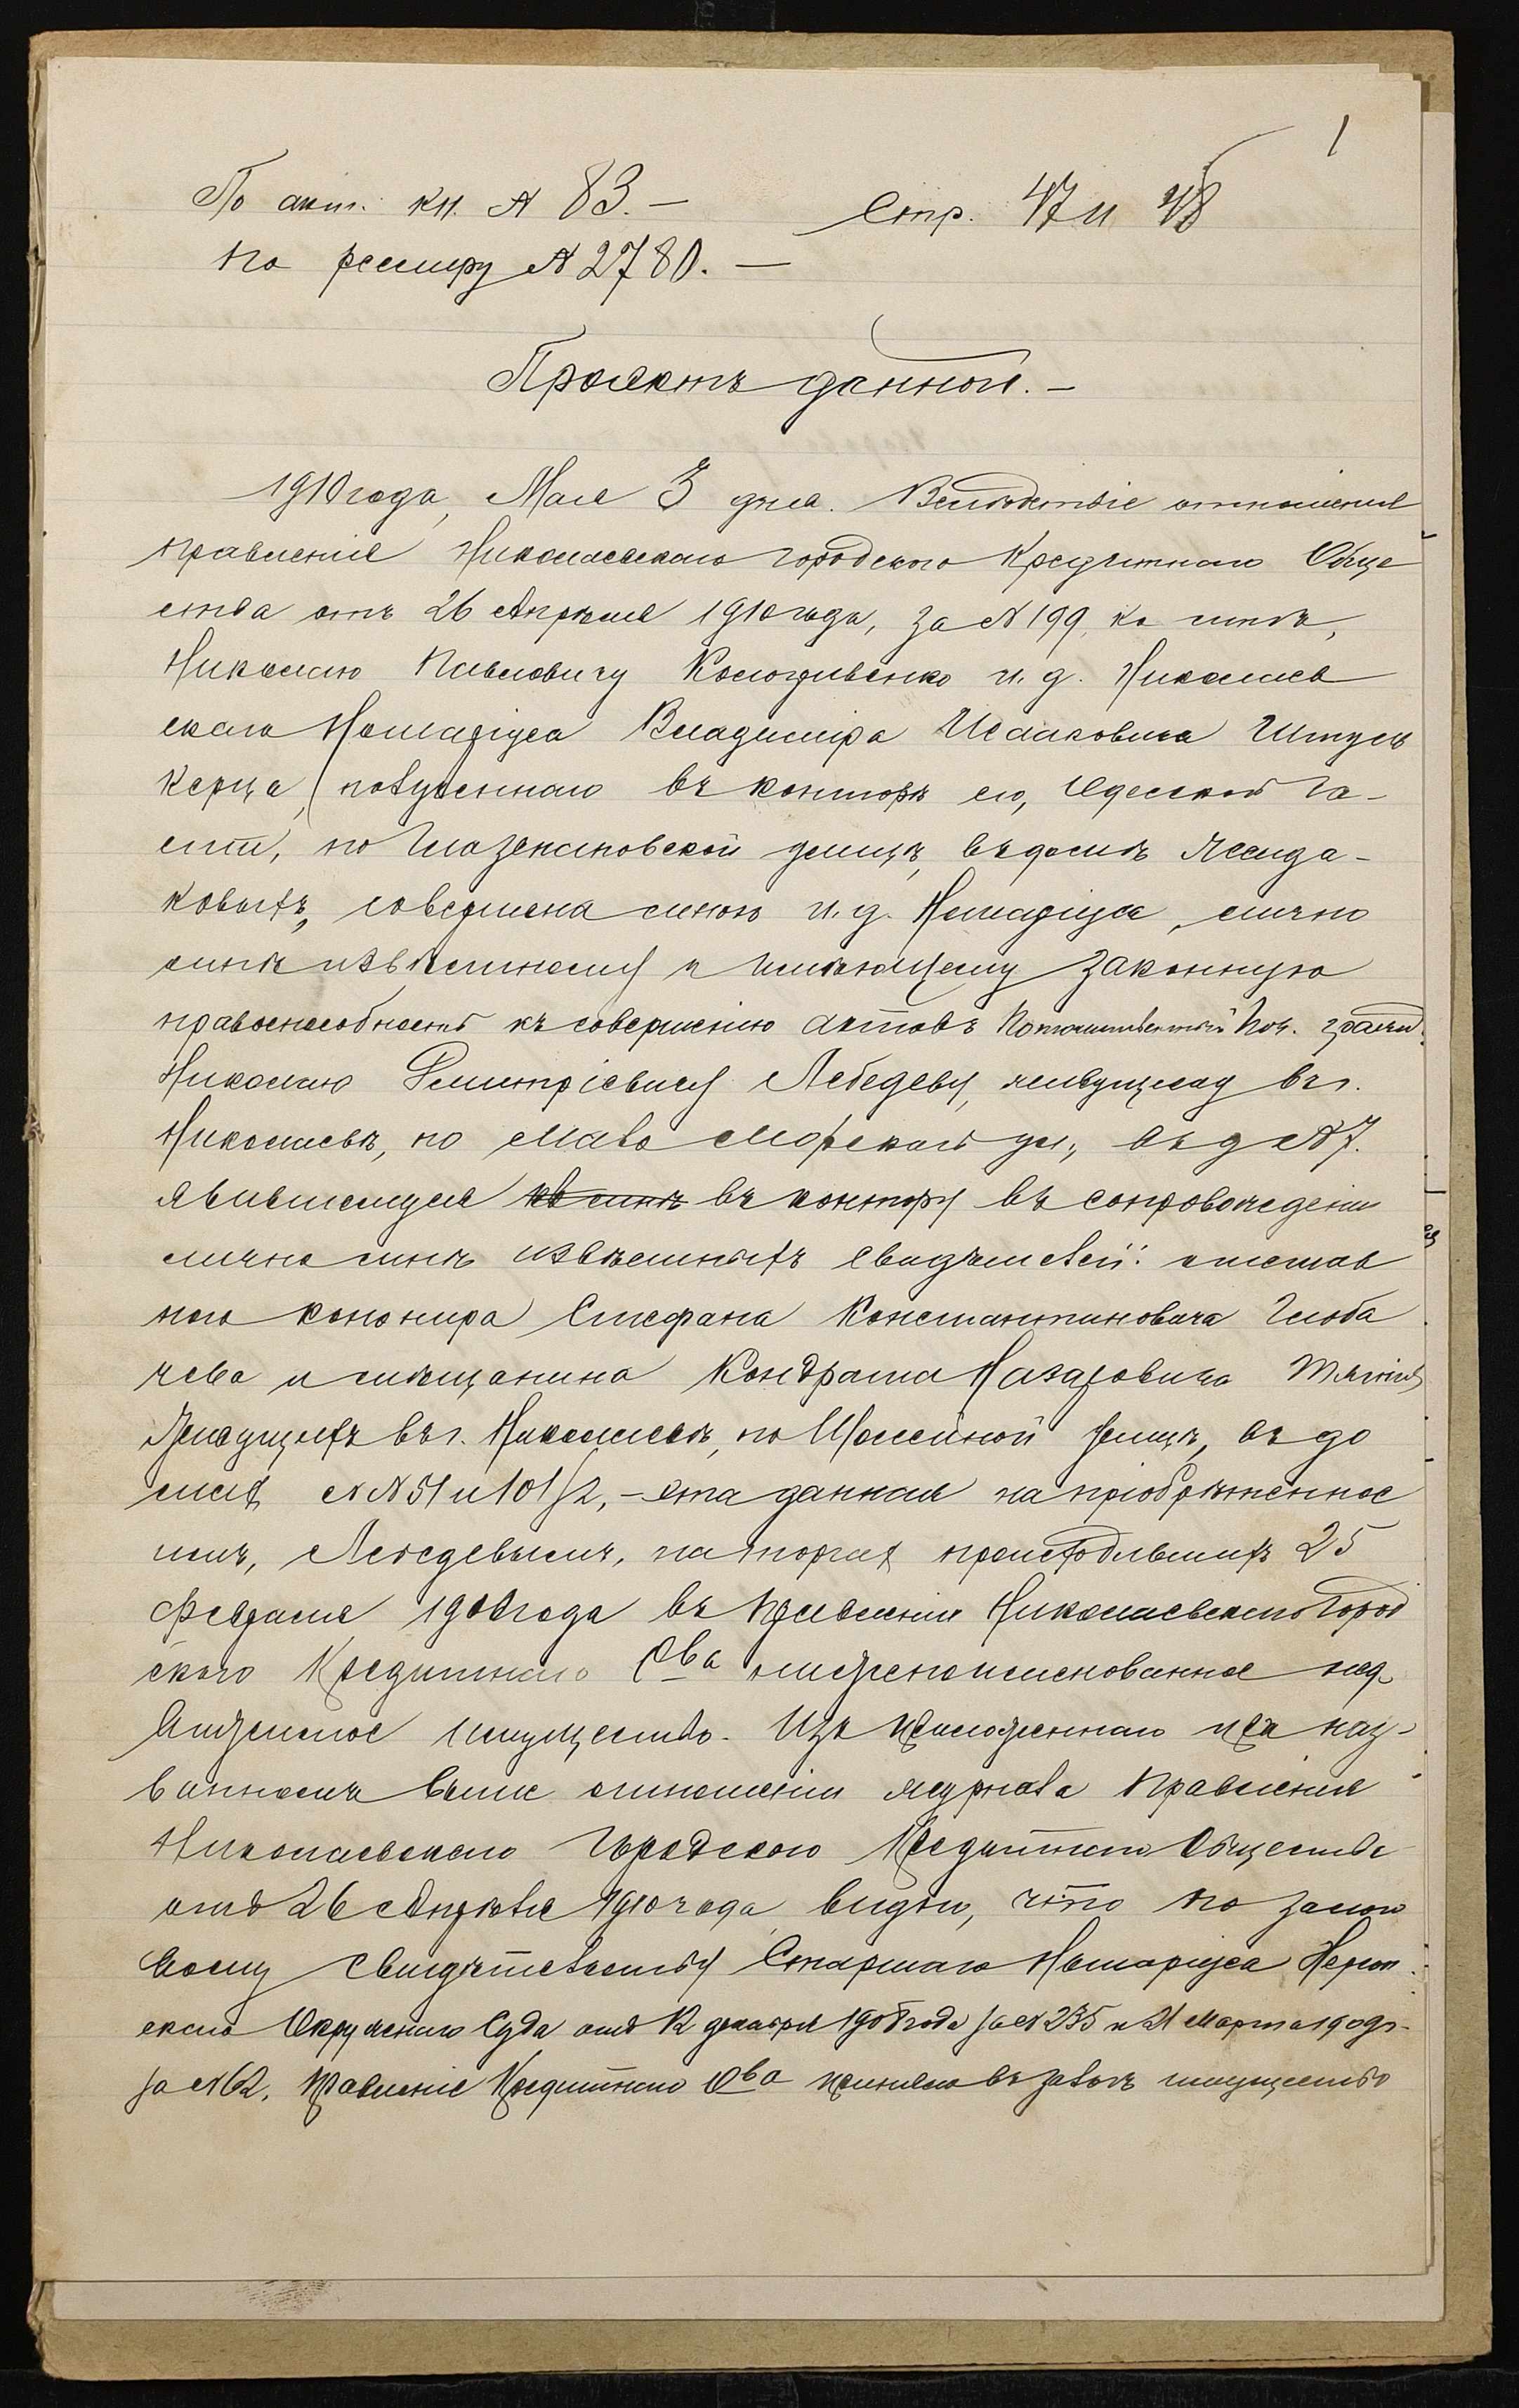 1
По акт. кн. № 83.— Стр. 47 и 48
по реестру № 2780.—
Проектъ данной.—
1910 года, Мая 3 дня. Вслѣдствіе отношенія
правленія Николаевскаго Городского Кредитнаго Обще
ства отъ 26 Апрѣля 1910 года, за № 199, ко мнѣ,
Николаю Павловичу и. д. Николаев
скаго Нотаріуса Владиміра Исааковича
въ конторѣ его, Одесской ча-
сти, по улицѣ, въ домѣ
ковыхъ, совершена мною и. д. Нотаріуса, лично
мнѣ извѣстному и имѣющему законную
правоспособность къ совершенію актовъ Поч. гражд.
Николаю Дмитріевичу Лебедеву, живущему въ г.
Николаевѣ, по Мало Морской ул., въ д № 7.
явившемуся ко мнѣ въ контору въ сопровожденіи
лично мнѣ извѣстныхъ свидѣтелей: отстав
ного канонира Стефана Константиновича
чева и мѣщанина Кондрата Назаровича
Живущихъ въ г. Николаевѣ, по улицѣ, въ до
махъ №№ 51 и 101/2,— эта данная на пріобрѣтенное
имъ, Лебедевымъ, на торгахъ происходившихъ 25
Февраля года въ Правленіи Николаевскаго Город
ского Кредитнаго О-ва нижепоименованное нед
вижимое имущество. Изъ приложеннаго при наз-
ванномъ выше отношеніи журнала Правленія
Николаевскаго Городского Кредитнаго Общества
отъ 26 Апрѣля 1910 года видно, что по залого
вому свидѣтельству Старшаго Нотаріуса Херсон
скаго Окружнаго Суда отъ 12 декабря года за № 235 и 21 Марта 1909 г.
за № 62, Правленіе Кредитнаго О-ва приняло въ залогъ имущество